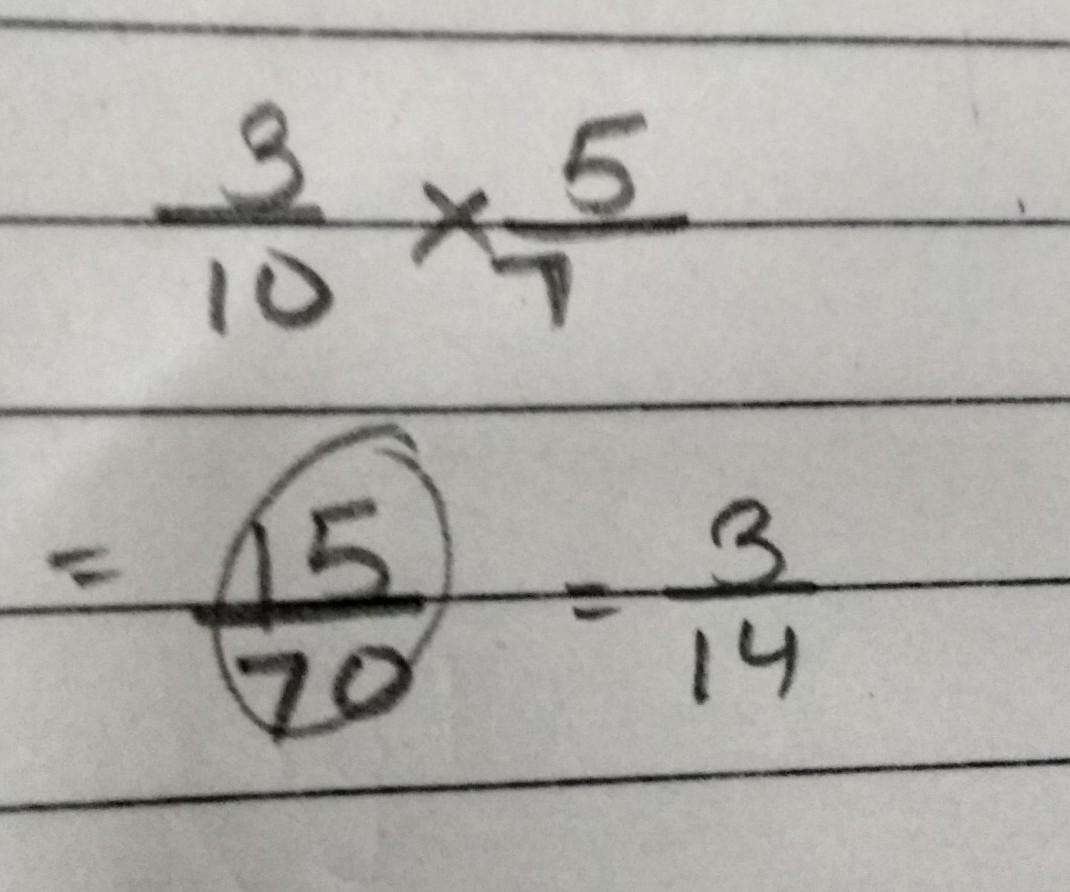 3/10 × 5/7
= 15/70 = 3/14